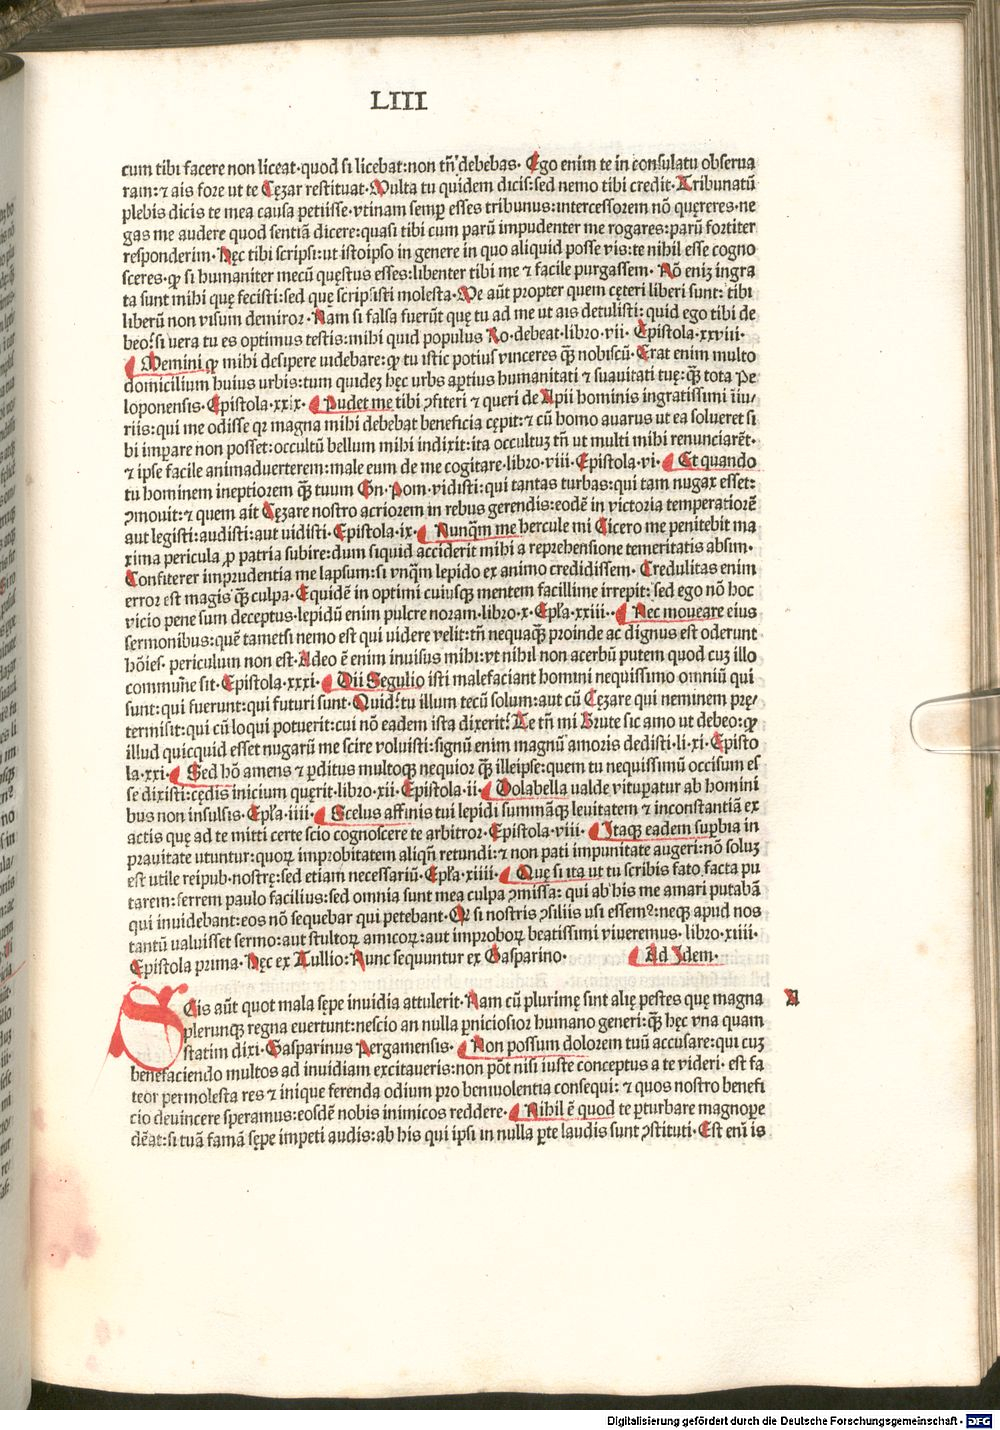 LIII
cum tibi facere non liceat·quod si licebat:non tñ debebas· Ego enim te in consulatu obserua
ram:⁊ ais fore ut te Cęzar restituat·Multa tu quidem dicis:sed nemo tibi credit·Tribunatū
plebis dicis te mea causa petiisse·vtinam semꝑ esses tribunus:intercessorem nō quęreres·ne
gas me audere quod sentiā dicere:quasi tibi cum parū impudenter me rogares:parū fortiter
responderim·Hęc tibi scripsi:ut istoipso in genere in quo aliquid posse vis:te nihil esse cogno
sceres·ꝙ si humaniter mecū questus esses:libenter tibi me ⁊ facile purgassem· Nō eniꝫ ingra
ta sunt mihi quę fecisti:sed quę scripsisti molesta·Me aūt propter quem cęteri liberi sunt: tibi
liberū non visum demiror·Nam si falsa fuerūt quę tu ad me ut ais detulisti: quid ego tibi de
beo?si vera tu es optimus testis:mihi quid populus Ro·debeat·libro·vii· Epistola·xxviii·
Memini ꝙ mihi desipere uidebare:ꝙ tu istic potius vinceres q̄ꝫ nobiscū·Erat enim multo
domicilium huius urbis:tum quideꝫ hęc urbs aptius humanitati ⁊ suauitati tuę:q̄ꝫ tota Pe
loponensis·Epistola·xxix·Pudet me tibi ꝯfiteri ⁊ queri de Apii hominis ingratissimi īiu/
riis:qui me odisse qꝛ magna mihi debebat beneficia cępit:⁊ cū homo auarus ut ea solueret si
bi imꝑare non posset:occultū bellum mihi indixit:ita occultuꝫ tñ ut multi mihi renunciarēt·
⁊ ipse facile animaduerterem:male eum de me cogitare·libro·viii·Epistola·vi· Et quando
tu hominem ineptiorem q̄ꝫ tuum Gn·Pom·vidisti:qui tantas turbas:qui tam nugax esset:
ꝯmouit:⁊ quem ait Cęzare nostro acriorem in rebus gerendis:eodē in victoria temperatiorē
aut legisti:audisti:aut uidisti·Epistola·ix·Nunq̄ꝫ me hercule mi Cicero me penitebit ma
xima pericula ꝓ patria subire:dum siquid acciderit mihi a reprehensione temeritatis absim·
Confiterer imprudentia me lapsum:si vnq̄ꝫ lepido ex animo credidissem· Credulitas enim
error est magis q̄ꝫ culpa·Equidē in optimi cuiusqꝫ mentem facillime irrepit: sed ego nō hoc
vicio pene sum deceptus·lepidū enim pulcre noram·libro·x·Epl̄a·xxiii··Nec moueare eius
sermonibus:quē tametsi nemo est qui uidere velit:tñ nequaq̄ꝫ proinde ac dignus est oderunt
hōies· periculum non est·Adeo ē enim inuisus mihi:vt nihil non acerbū putem quod cuꝫ illo
commune sit·Epistola·xxxi·Dii Segulio isti malefaciant homini nequissimo omniū qui
sunt:qui fuerunt:qui futuri sunt·Quid?tu illum tecū solum:aut cū Cęzare qui neminem prę/
termisit:qui cū loqui potuerit:cui nō eadem ista dixerit?Te tñ mi Brute sic amo ut debeo:ꝙ
illud quicquid esset nugarū me scire voluisti:signū enim magnū amoris dedisti·li·xi·Episto
la·xxi·Sed hō amens ⁊ ꝑditus multoqꝫ nequior q̄ꝫ illeipse:quem tu nequissimū occisum es
se dixisti:cędis inicium quęrit·libro·xii·Epistola·ii·Dolabella ualde vituꝑatur ab homini
bus non insulsis·Epl̄a·iiii·Scelus affinis tui lepidi summāqꝫ leuitatem ⁊ inconstantiā ex
actis quę ad te mitti certe scio cognoscere te arbitror·Epistola·viii·Itaqꝫ eadem suꝑbia in
prauitate utuntur:quoꝝ improbitatem aliqñ retundi:⁊ non pati impunitate augeri:nō soluꝫ
est utile reipub·nostrę:sed etiam necessariū·Epl̄a·xiiii·Quę si ita ut tu scribis fato facta pu
tarem:ferrem paulo facilius:sed omnia sunt mea culpa ꝯmissa: qui ab his me amari putabā
qui inuidebant:eos nō sequebar qui petebant·Qꝛ si nostris ꝯsiliis usi essem?:neqꝫ apud nos
tantū ualuisset sermo:aut stultoꝝ amicoꝝ:aut improboꝝ beatissimi viueremus·libro·xiiii·
Epistola prima·Hęc ex Tullio:Nunc sequuntur ex Gasparino· Ad Idem·
SCis aūt quot mala sępe inuidia attulerit·Nam cū plurimę sint alię pestes quę magna A
plerunqꝫ regna euertunt:nescio an nulla ꝑniciosior humano generi:q̄ꝫ hęc vna quam
statim dixi·Gasparinus Pergamensis·Non possum dolorem tuū accusare:qui cuꝫ
benefaciendo multos ad inuidiam excitaueris:non pōt nisi iuste conceptus a te videri· est fa
teor permolesta res ⁊ inique ferenda odium pro beniuolentia consequi: ⁊ quos nostro benefi
cio deuincere speramus:eosdē nobis inimicos reddere·Nihil ē quod te ꝑturbare magnopꝫe
deāt:si tuā famā sępe impeti audis:ab his qui ipsi in nulla ꝑte laudis sunt ꝯstituti·Est enī is
Digitalisierung gefördert durch die Deutsche Forschungsgemeinschaft · DFG